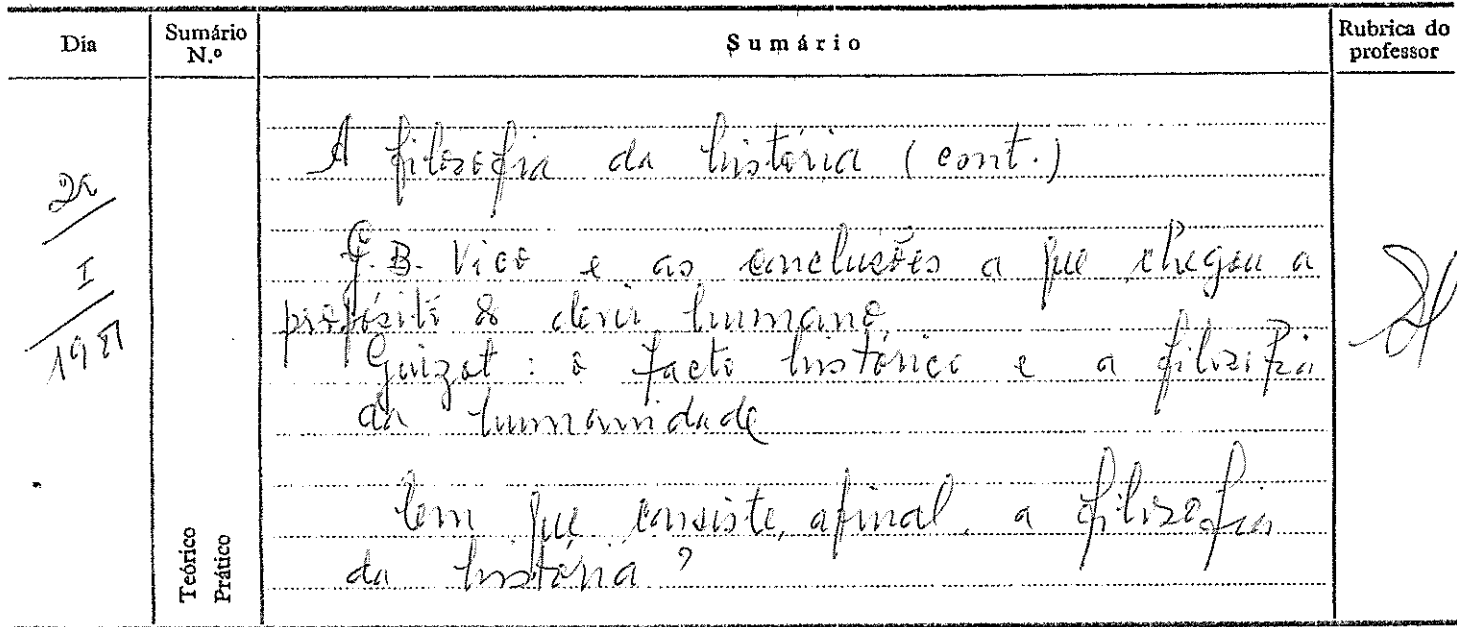 Dia
Sumário N.º
Sumário
Rubrica do professor
A filosofia da história (cont.)
G.B. Vico e as conclusões a que chegou a
propósito do devir humano
Guizot: o facto histórico e a filosofia
da humanidade
Em que consiste, afinal, a filosofia
da história?
I
Teórico
Prático